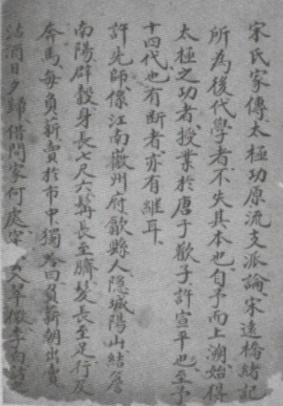 宋氏家傳太極功原流支派論宋遠橋緒記
所為後代學者不失其本也自予而上溯始得
太極之功者授業於唐于歡子許宣平也至予
十四代也有斷者亦有繼耳
許先師係江南徽州府歙縣人隱城陽山結簷
南陽辟穀身長七尺六髯長至臍髮長至足行及
奔馬每負薪賣於市中獨吟曰負薪朝出賣
沽酒日夕歸借問家何處穿入翠微李白訪